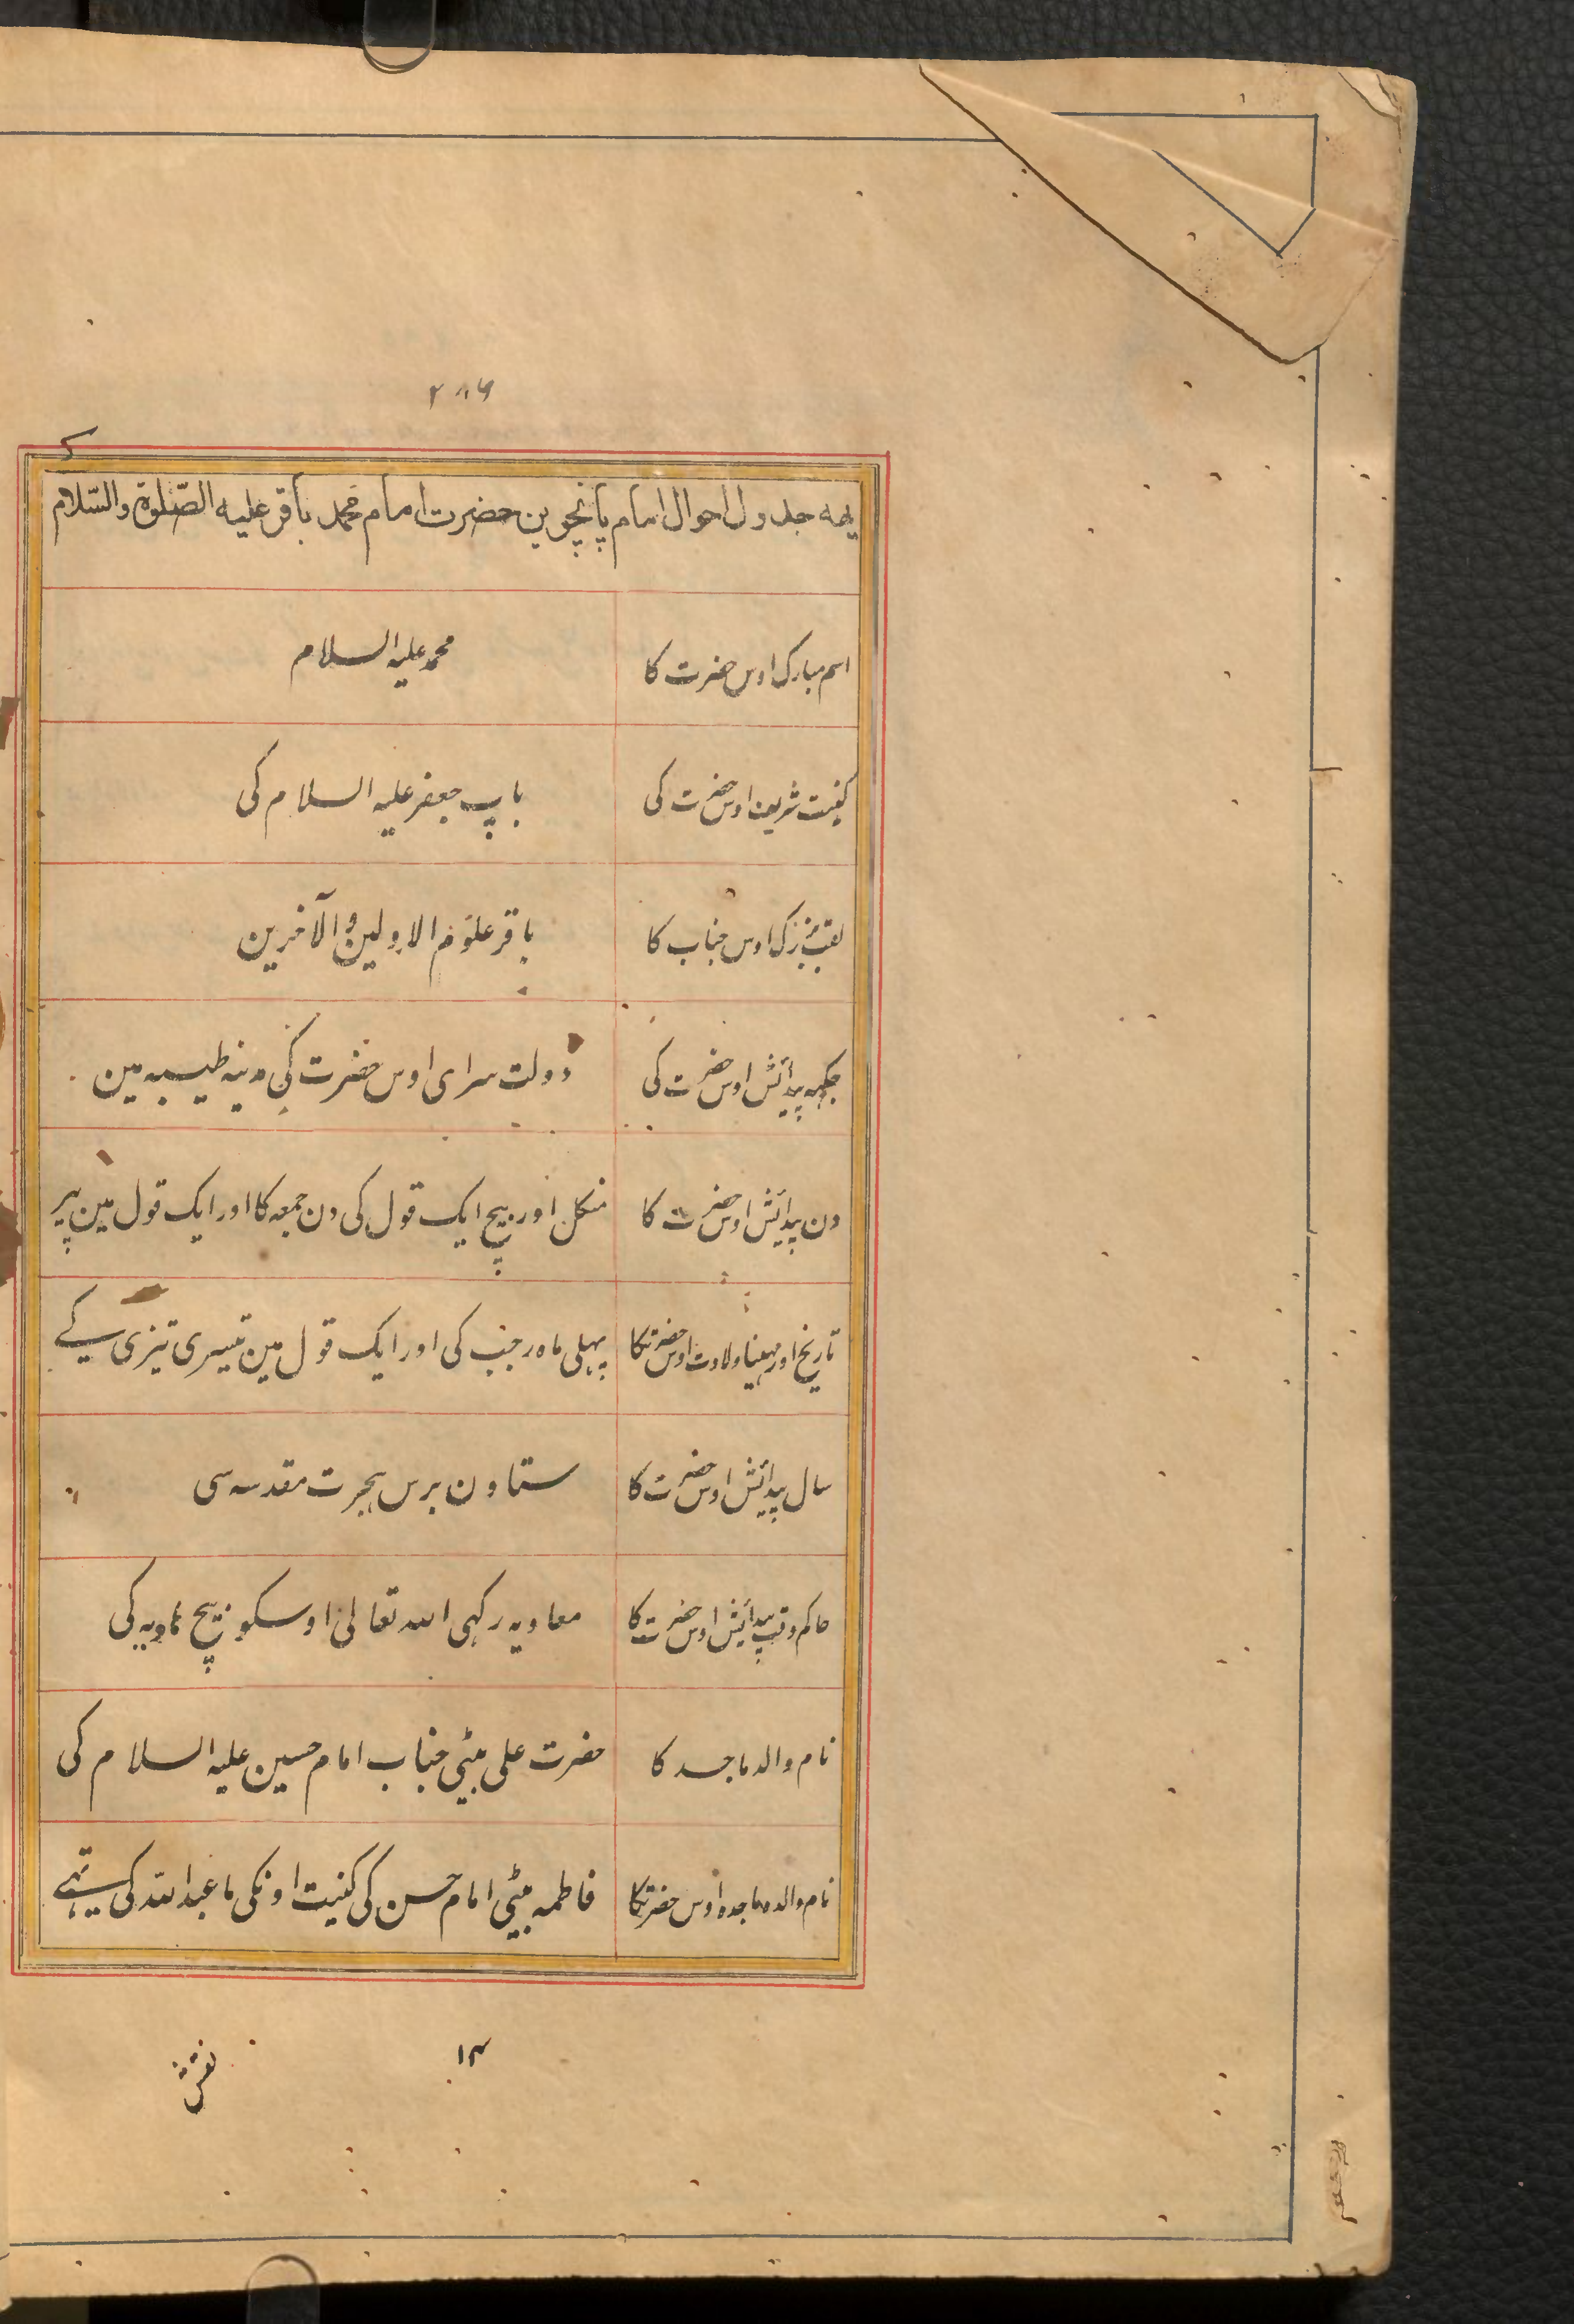 ۲۸۶
یہہ جدول احوال امام پانچوین حضرت امام محمد باقر علیہ الصّلوة والسّلام کی
اسم مبارک اوس حضرت کا محمد علیہ السلام
کنیت شریف اوس حضرت کی باپ جعفر علیہ السلام کی
لقب بزرک اوس جناب کا باقر علوم الاولین و الآخرین
جکہہ پیدائش اوس حضرت کی دولت سرای اوس حضرت کی مدینہ طیبہ مین
دن پیدائش اوس حضرت کا منکل اور بیچ ایک قول کی دن جمعہ کا اور ایک قول مین پیر
تاریخ اور مہینا ولادت اوس حضرت کا پہلی ماہ رجب کی اور ایک قول مین تیسری تیزی کے
سال پیدائش اوس حضرت کا ستاون برس ہجرت مقدسہ سی
حاکم وقت پیدائش اوس حضرت کا معاویہ رکہی اللہ تعالی اوسکو بیچ ہاویہ کی
نام والد ماجد کا حضرت علی بیٹی جناب امام حسین علیہ السلام کی
نام والدہ ماجدہ اوس حضرت کا فاطمہ بیٹی امام حسن کی کنیت اونکی ما عبداللہ کی ہے
نقش